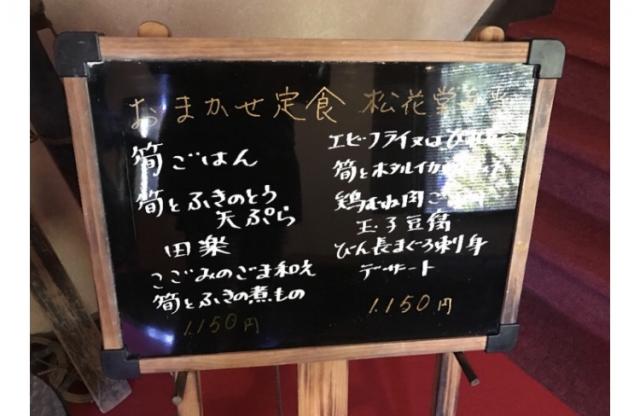 おまかせ定食
筍ごはん
筍とふきのとう
天ぷら
田楽
こごみのごま和え
筍とふきの煮もの
1.150円
松花堂弁当
エビフライ又は
筍とホタルイカ
鶏むね肉
玉子豆腐
びん長まぐろ刺身
デザート
1.150円